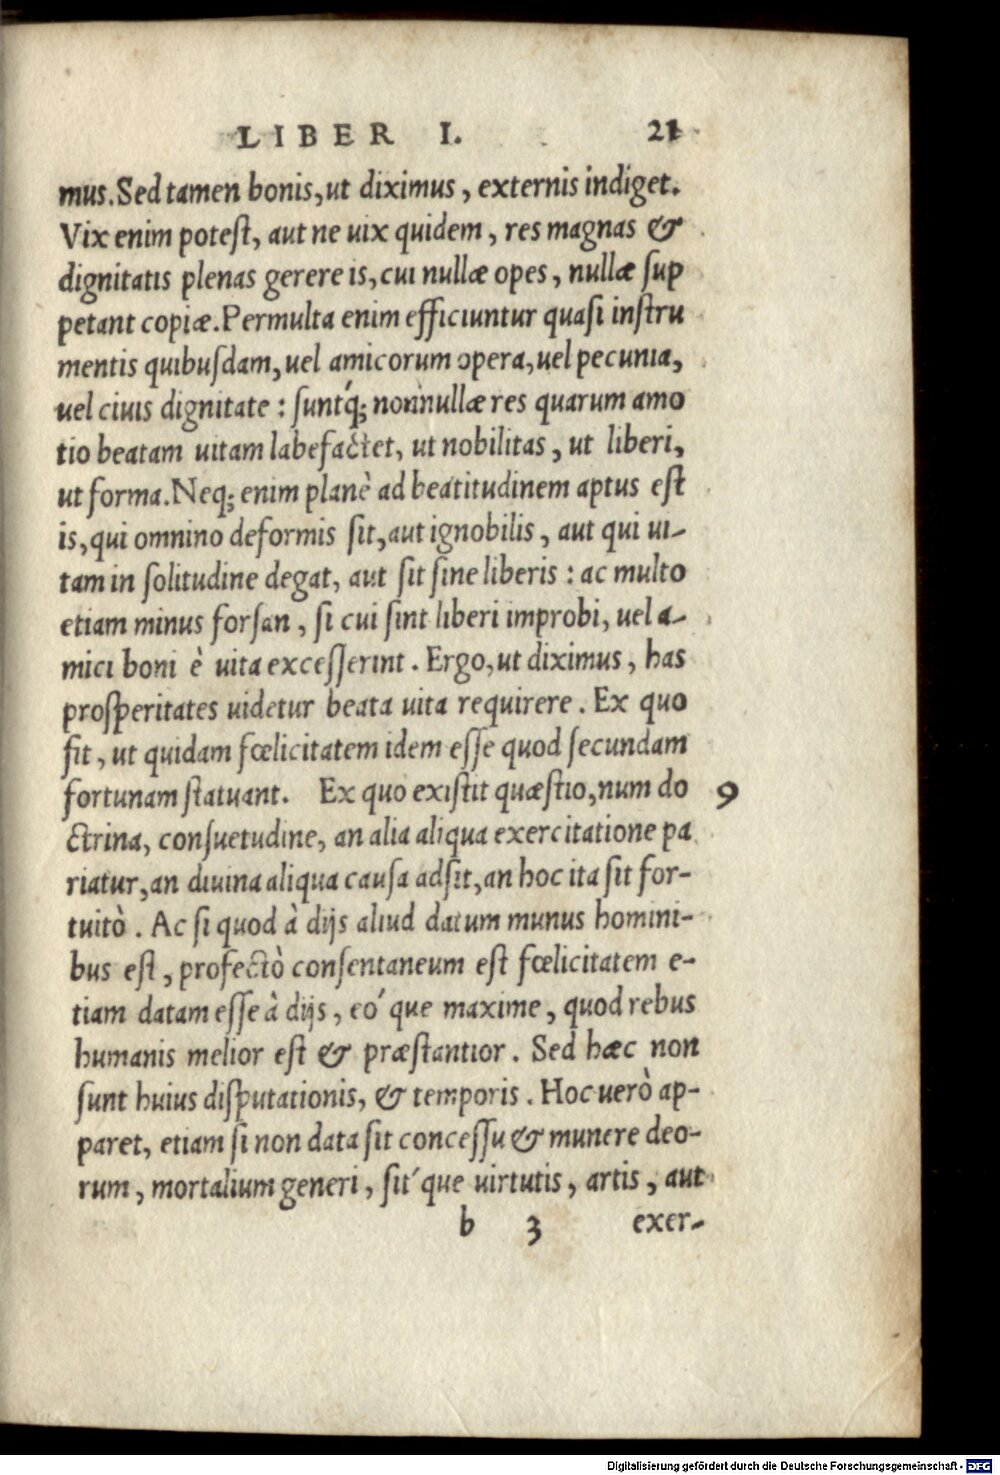 LIBER I. 21
mus. Sed tamen bonis, ut diximus, externis indiget.
Vix enim potest, aut ne uix quidem, res magnas &
dignitatis plenas gerere is, cui nullæ opes, nullæ sup
petant copiæ. Permulta enim efficiuntur quasi instru
mentis quibusdam, uel amicorum opera, uel pecunia,
uel ciuis dignitate : suntq́; nonnullæ res quarum amo
tio beatam uitam labefactet, ut nobilitas, ut liberi,
ut forma. Neq; enim planè ad beatitudinem aptus est
is, qui omnino deformis sit, aut ignobilis, aut qui ui-
tam in solitudine degat, aut sit sine liberis : ac multo
etiam minus forsan, si cui sint liberi improbi, uel a-
mici boni è uita excesserint. Ergo, ut diximus, has
prosperitates uidetur beata uita requirere. Ex quo
fit, ut quidam fœlicitatem idem esse quod secundam
fortunam statuant. Ex quo existit quæstio, num do 9
ctrina, consuetudine, an alia aliqua exercitatione pa
riatur, an diuina aliqua causa adsit, an hoc ita sit for-
tuitò. Ac si quod à dijs aliud datum munus homini-
bus est, profectò consentaneum est fœlicitatem e-
tiam datam esse à dijs, eó que maxime, quod rebus
humanis melior est & præstantior. Sed hæc non
sunt huius disputationis, & temporis. Hoc uerò ap-
paret, etiam si non data sit concessu & munere deo-
rum, mortalium generi, sit́ que uirtutis, artis, aut
b 3 exer-
Digitalisierung gefördert durch die Deutsche Forschungsgemeinschaft - DFG